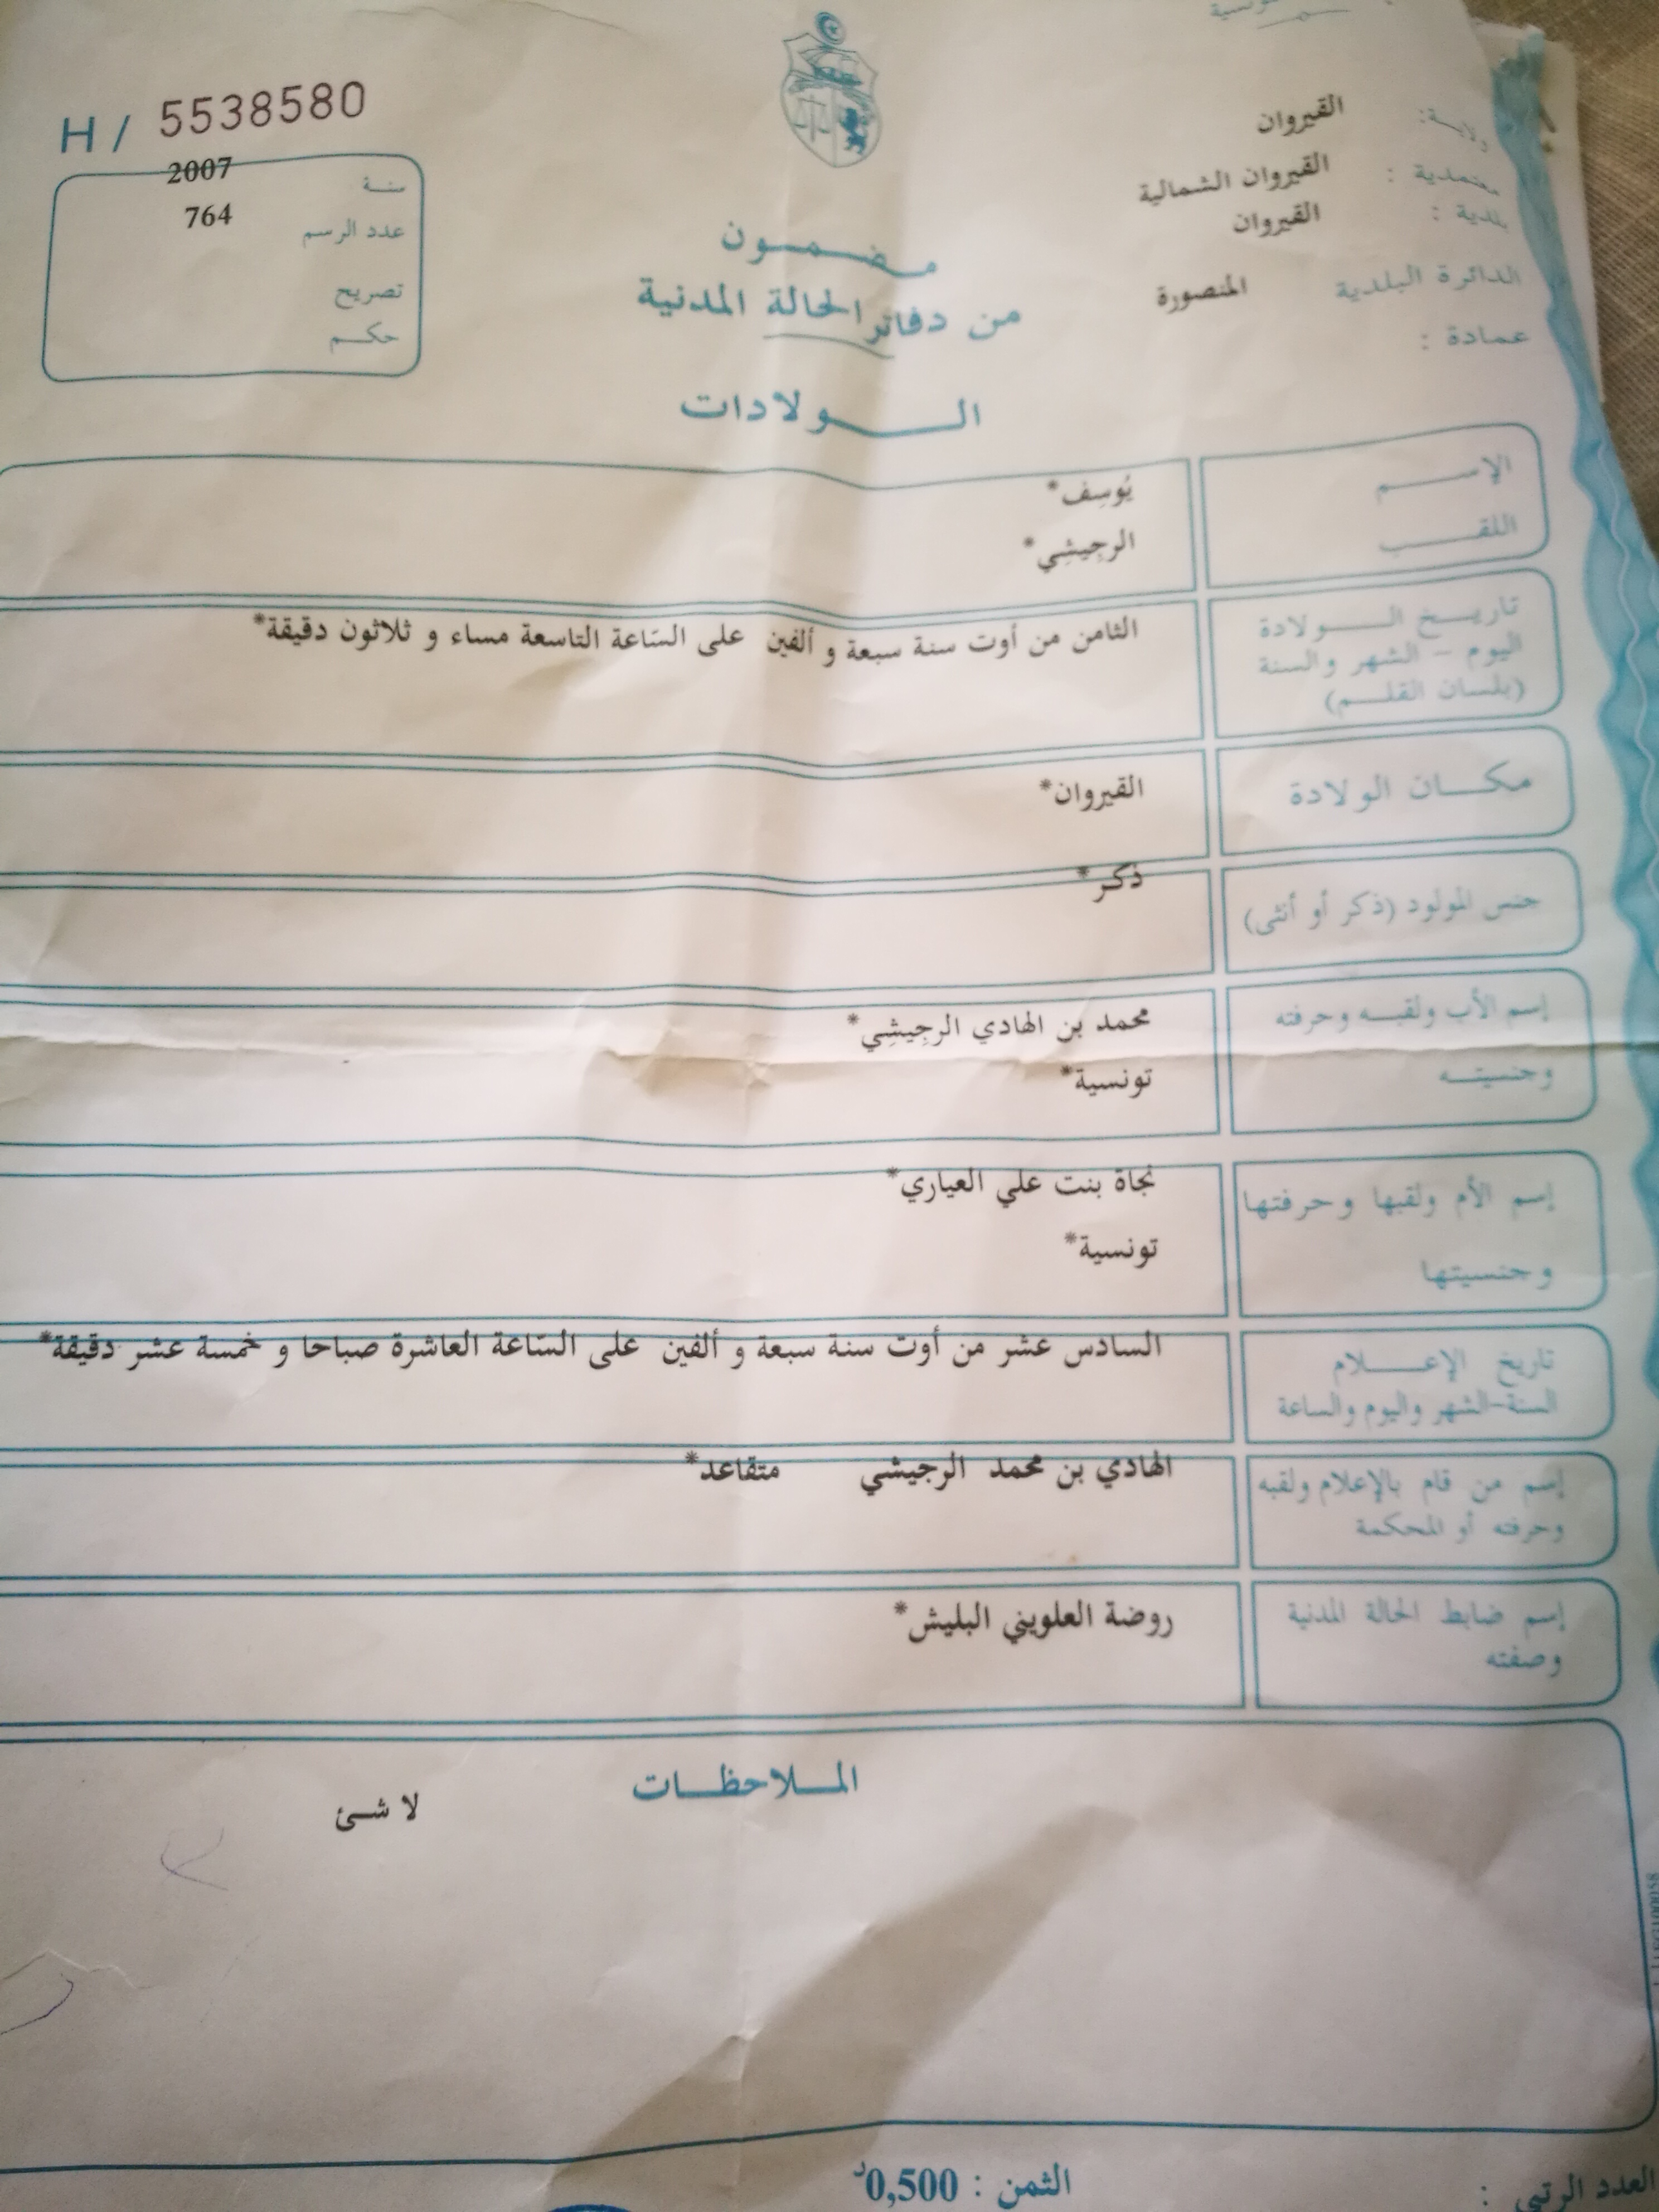 H / 5538580
ولايــة: القيروان
معتمدية : القيروان الشمالية
بلدية : القيروان
الدائرة البلدية المنصورة
عمادة :
سنــة 2007
عدد الرسم 764
تصريح
حكــم
مـضـمـون
من دفاتر الحالة المدنية
الــولادات
الإســـم يُوسِف*
اللقـــب الرجِيشِي*
تاريـــخ الـــولادة الثامن من أوت سنة سبعة و ألفين على السّاعة التاسعة مساء و ثلاثون دقيقة*
اليوم - الشهر والسنة
(بلسان القلــم)
مكـــان الولادة القيروان*
جنس المولود (ذكر أو أنثى) ذكر*
إسم الأب ولقبــه وحرفته محمد بن الهادي الرجِيشِي*
وجنسيتــه تونسية*
إسم الأم ولقبها وحرفتها نجاة بنت علي العياري*
وجنسيتها تونسية*
تاريخ الإعـــلام السادس عشر من أوت سنة سبعة و ألفين على السّاعة العاشرة صباحا و خمسة عشر دقيقة*
السنة-الشهر واليوم والساعة
إسم من قام بالإعلام ولقبه الهادي بن محمد الرجيشي متقاعد*
وحرفته أو المحكمة
إسم ضابط الحالة المدنية روضة العلويني البليش*
وصفته
المــلاحظــات
لا شئ
العدد الرتبي :
الثمن : 0,500د